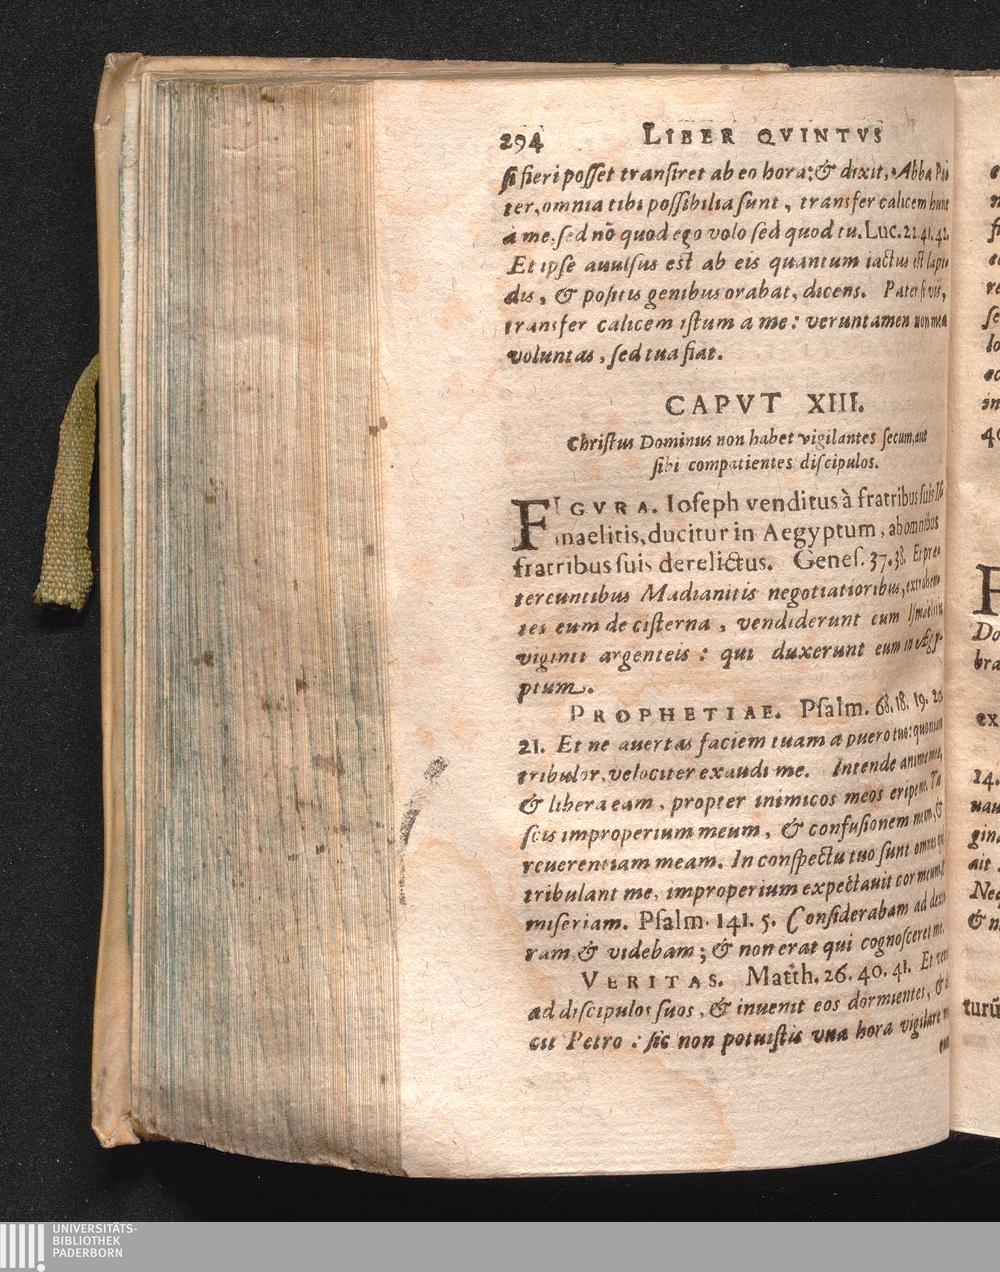 294 LIBER QVINTVS
si fieri posset transiret ab eo hora: & dixit, Abba Pa-
ter, omnia tibi possibilia sunt, transfer calicem hunc
à me, sed nō quod ego volo sed quod tu. Luc. 22. 41. 42.
Et ipse auulsus est ab eis quantum iactus est lapi-
dis, & positis genibus orabat, dicens. Pater si vis,
transfer calicem istum a me: veruntamen non mea
voluntas, sed tua fiat.
CAPVT XIII.
Christus Dominus non habet vigilantes secum, aut
sibi compatientes discipulos.
FIGVRA. Ioseph venditus à fratribus suis Is-
maelitis, ducitur in Aegyptum, ab omnibus
fratribus suis derelictus. Genes. 37. 38. Et præ-
tereuntibus Madianitis negotiatioribus, extrahen-
tes eum de cisterna, vendiderunt eum Ismaelitis
viginti argenteis: qui duxerunt eum in Ægy-
ptum.
PROPHETIAE. Psalm. 68. 18. 19. 20.
21. Et ne auertas faciem tuam a puero tuo: quoniam
tribulor, velociter exaudi me. Intende animæ meæ,
& libera eam, propter inimicos meos eripe me. Tu
scis improperium meum, & confusionem meam, &
reuerentiam meam. In conspectu tuo sunt omnes qui
tribulant me, improperium expectauit cor meum, &
miseriam. Psalm. 141. 5. Considerabam ad dexte-
ram & videbam; & non erat qui cognosceret me.
VERITAS. Matth. 26. 40. 41. Et venit
ad discipulos suos, & inuenit eos dormientes, & di-
cit Petro: sic non potuistis vna hora vigilare
40
Do
bra
ex
14.
uau
gin
ait
Neq
& n
turū
UNIVERSITÄTS-
BIBLIOTHEK
PADERBORN